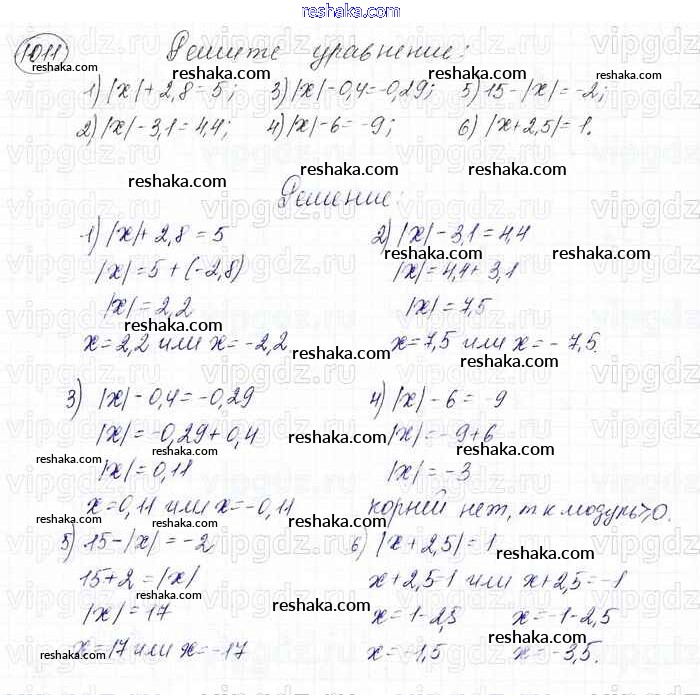 reshaka.com
1011 Решите уравнение:
1) |x| + 2,8 = 5; 3) |x| - 0,4 = -0,29; 5) 15 - |x| = -2;
2) |x| - 3,1 = 4,4; 4) |x| - 6 = -9; 6) |x + 2,5| = 1.
Решение:
1) |x| + 2,8 = 5
|x| = 5 + (-2,8)
|x| = 2,2
x = 2,2 или x = -2,2
2) |x| - 3,1 = 4,4
|x| = 4,4 + 3,1
|x| = 7,5
x = 7,5 или x = -7,5.
3) |x| - 0,4 = -0,29
|x| = -0,29 + 0,4
|x| = 0,11
x = 0,11 или x = -0,11
4) |x| - 6 = -9
|x| = -9 + 6
|x| = -3
корней нет, т к модуль ≥ 0.
5) 15 - |x| = -2
15 + 2 = |x|
|x| = 17
x = 17 или x = -17
6) |x + 2,5| = 1
x + 2,5 = 1 или x + 2,5 = -1
x = 1 - 2,5 x = -1 - 2,5
x = -1,5 x = -3,5.